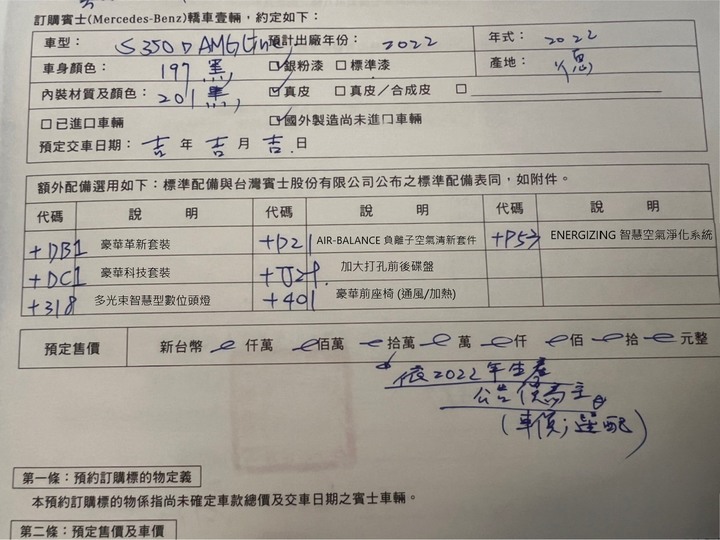 訂購賓士(Mercedes-Benz)轎車壹輛，約定如下：
車型： S350D AMG Line 預計出廠年份： 2022 年式： 2022
車身顏色： 197 黑 ☑銀粉漆 □標準漆 產地： 德
內裝材質及顏色： 201 黑 ☑真皮 □真皮／合成皮 □
□已進口車輛 ☑國外製造尚未進口車輛
預定交車日期： 吉 年 吉 月 吉 日
額外配備選用如下：標準配備與台灣賓士股份有限公司公布之標準配備表同，如附件。
代碼 說 明 代碼 說 明 代碼 說 明
+DB1 豪華革新套裝 +D21 AIR-BALANCE 負離子空氣清新套件 +P53 ENERGIZING 智慧空氣淨化系統
+DC1 豪華科技套裝 +U29 加大打孔前後碟盤
+318 多光束智慧型數位頭燈 +401 豪華前座椅 (通風/加熱)
預定售價 新台幣 仟萬 佰萬 拾萬 萬 仟 佰 拾 元整
依2022年生產
公告價為主
(車價；選配)
第一條：預約訂購標的物定義
本預約訂購標的物係指尚未確定車款總價及交車日期之賓士車輛。
第二條：預定售價及車價